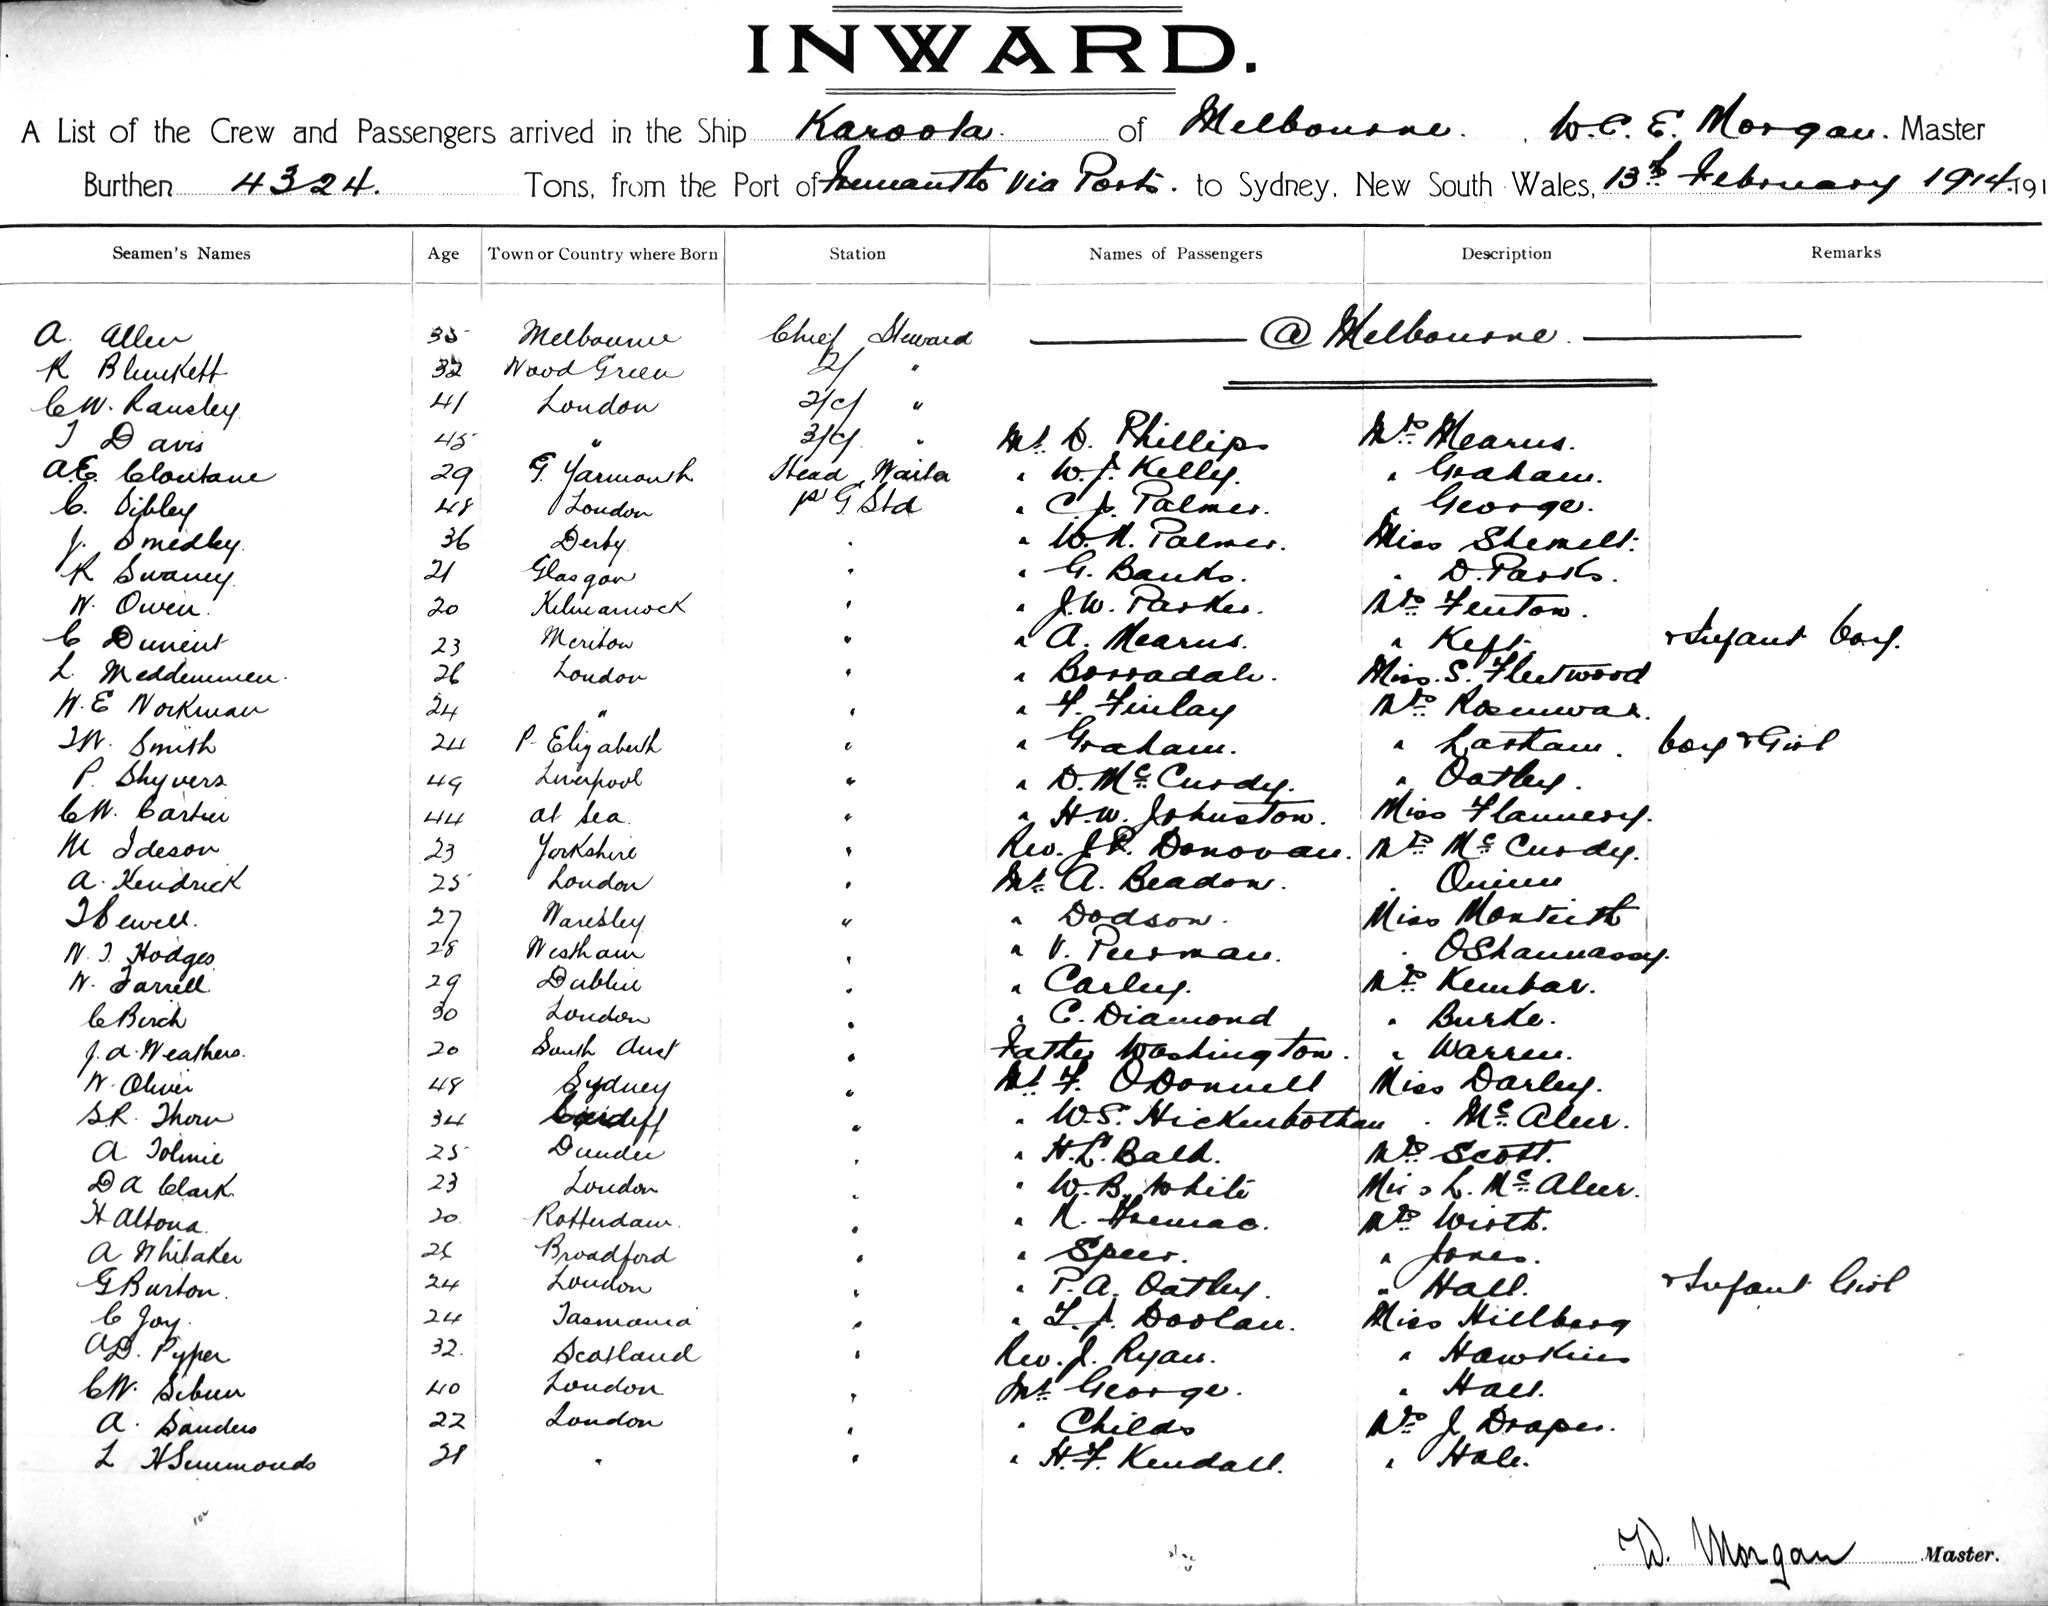 INWARD.
A List of the Crew and Passengers arrived in the Ship Karoola. of Melbourne. , W. C. E. Morgan. Master
Burthen 4324. Tons, from the Port of Fremantle Via Ports. to Sydney, New South Wales, 13th February 1914. 191
Seamen's Names Age Town or Country where Born Station Names of Passengers Description Remarks
A. Allen 35 Melbourne Chief Steward @ Melbourne.
R Blunkett 32 Wood Green 2/ "
C W. Ransley 41 London 2/C/ "
T Davis 45 " 3/C/ " Mr. D. Phillips Mrs. Mearns.
A.E. Cloutane 29 G. Yarmouth Head Waiter " W. J. Kelly. " Graham.
C. Sibley 48 London 1st G. Std " C. J. Palmer. " George.
J. Smedley 36 Derby " " W. N. Palmer. Miss Shemelt.
R Swaney. 21 Glasgow " " G. Banks. " D. Parks.
W. Owen. 20 Kilmarnock " " J. W. Parker. Mrs. Fenton.
C Dunient 23 Meriton " " A. Mearns. " Keft. & Infant boy.
L. Meddemmen. 26 London " " Borradale. Miss. S. Fleetwood
W. E Workman 24 " " " F. Finlay Mrs. Rosenwax.
T W. Smith 24 P. Elizabeth " " Graham. " Lastam. boy & Girl
P. Shyvers 49 Liverpool " " D. McCurdy. " Oatley.
C W. Cartier 44 at Sea. " " H. W. Johnston. Miss Flannery.
M Ideson 23 Yorkshire " Rev. J. P. Donovan. Mrs. McCurdy.
A. Kendrick 25 London " Mr. A. Beadon. " Quinn
T Sewell. 27 Waresley " " Dodson. Miss Monteith
W. T. Hodges 28 Westham " " V. Peerman. " OShannassy.
W. Farrell 29 Dublin " " Carley. Mrs. Kembar.
C Birch 30 London " " C. Diamond " Burke.
J. A. Weathers. 20 South Aust " Father Washington. " Warren.
W. Oliver 48 Sydney " Mr. F. ODonnell Miss Darley.
S R. Thorn 34 Cardiff " " W. S. Hickenbotham " McAleer.
A Tolmie 25 Dundee " " H. L. Bald. Mrs. Scott.
D A Clark. 23 London " " W. B. White Miss L. McAleer.
H Altona. 20 Rotterdam. " " Mrs. Wirth.
A Whitaker 26 Broadford " " Speer. " Jones.
G Burton. 24 London " " P. A. Oatley. " Hall. & Infant Girl
C Joy. 24 Tasmania " " L. J. Doolan. Miss Hillberg
A D. Pyper 32. Scotland " Rev. J. Ryan. " Hawkins
C W. Sibun 40 London " Mr. George. " Hall.
A. Sanders 22 London " " Childs Mrs. J. Draper.
L H Simmonds 21 " " " H. F. Kendall. " Hale.
W. Morgan Master.